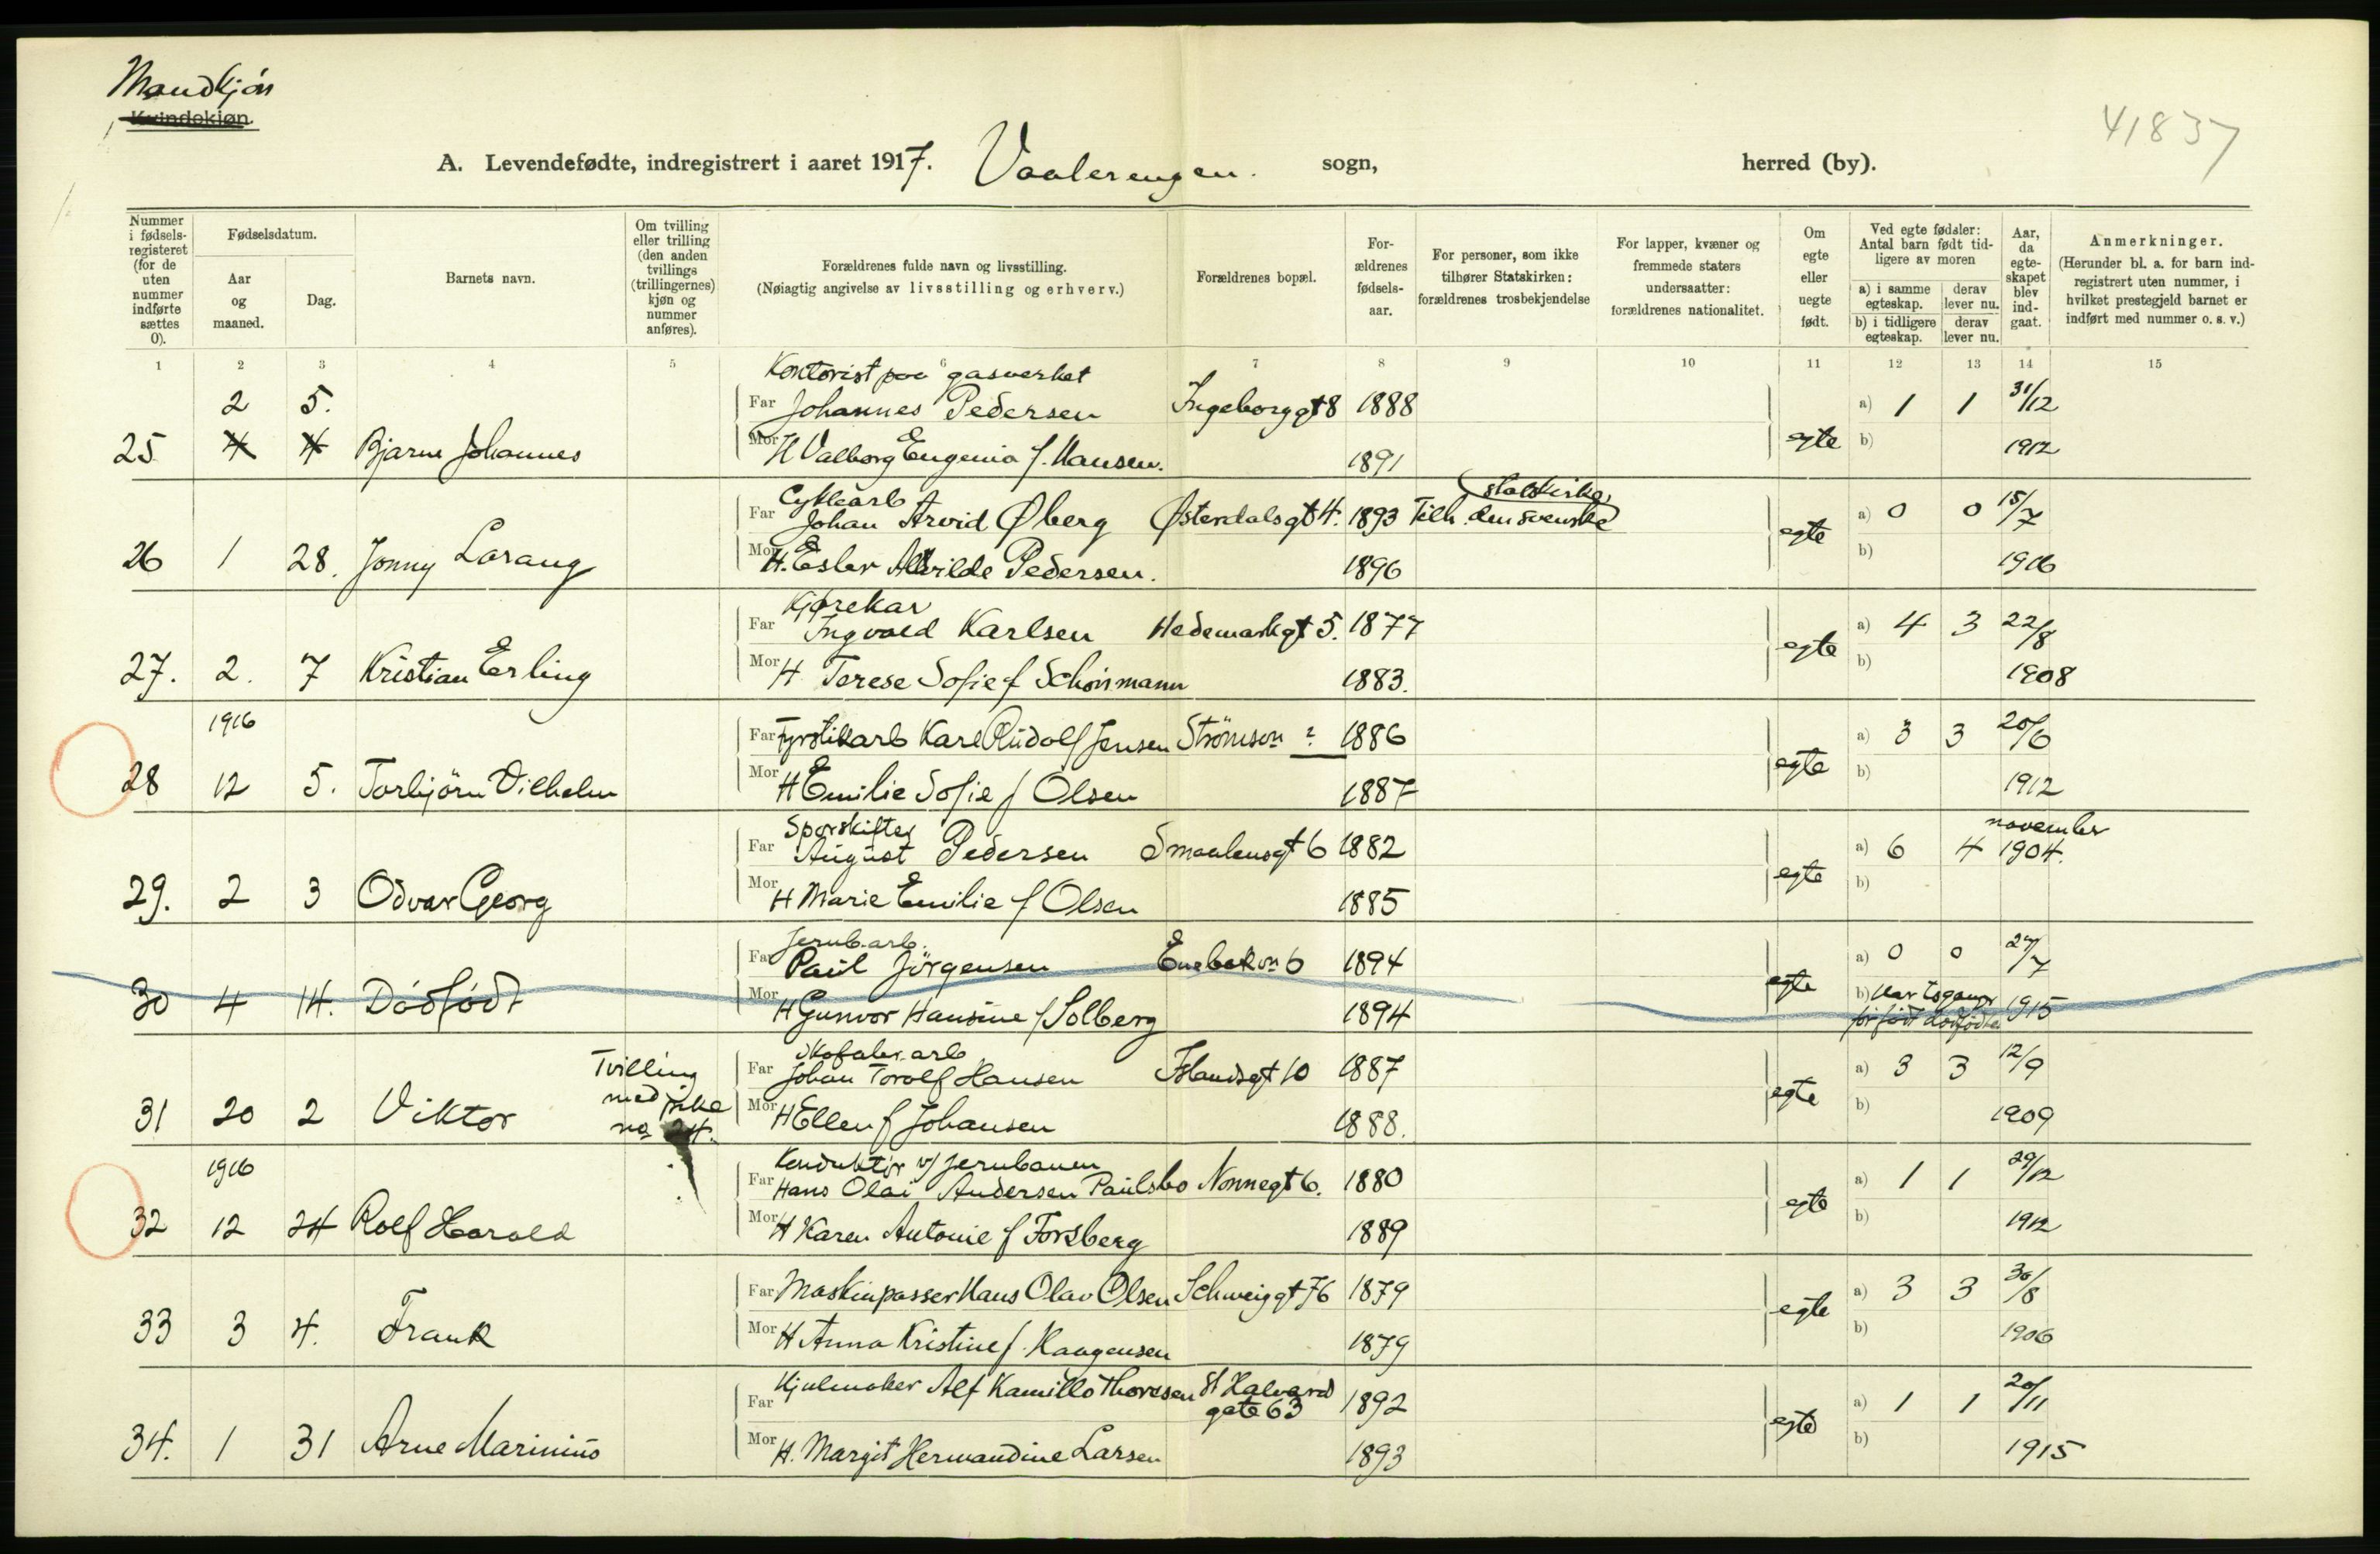 Mandkjøn
Kvindekjøn.
41837
A. Levendefødte, indregistrert i aaret 1917. Vaalerengen. sogn, herred (by).
Nummer i fødsels-registeret (for de uten nummer indførte sættes 0).
Fødselsdatum.
Aar og maaned.
Dag.
Barnets navn.
Om tvilling eller trilling (den anden tvillings (trillingernes) kjøn og nummer anføres).
Forældrenes fulde navn og livsstilling.
(Nøiagtig angivelse av livsstilling og erhverv.)
Forældrenes bopæl.
For-ældrenes fødsels-aar.
For personer, som ikke tilhører Statskirken: forældrenes trosbekjendelse
For lapper, kvæner og fremmede staters undersaatter: forældrenes nationalitet.
Om egte eller uegte født.
Ved egte fødsler: Antal barn født tid-ligere av moren
a) i samme egteskap.
derav lever nu.
b) i tidligere egteskap.
derav lever nu.
Aar, da egte-skapet blev ind-gaat.
Anmerkninger.
(Herunder bl. a. for barn ind-registrert uten nummer, i hvilket prestegjeld barnet er indført med nummer o. s. v.)
1 2 3 4 5 6 7 8 9 10 11 12 13 14 15
Kontorist paa gasverket
2 5. Far Johannes Pedersen Ingeborggt 8 1888 a) 1 1 31/12
25 4 4 Bjarne Johannes Mor H Valborg Eugenia f. Hansen. 1891 egte b) 1912
Cyklearb statskirke
Far Johan Arvid Øberg Østerdalsgt 4. 1893 Tilh. den svenske a) 0 0 15/7
26 1 28. Jonny Lorang Mor H. Ester Alvilde Pedersen. 1896 egte b) 1916
Kjørekar
Far Ingvald Karlsen Hedemarkgt 5. 1877 a) 4 3 22/8
27. 2. 7 Kristian Erling Mor H Terese Sofie f Schoirmann 1883. egte b) 1908
1916 Far Fyrstikarb Karl Rudolf Jensen Strömsvn ? 1886 a) 3 3 20/6
28 12 5. Torbjörn Vilhelm Mor H Emilie Sofie f Olsen 1887 egte b) 1912
Sporskifter november
Far August Pedersen Smaalensgt 6 1882 a) 6 4 1904.
29. 2 3 Odvar Georg Mor H Marie Emilie f Olsen 1885 egte b)
Jernb.arb.
Far Paul Jörgensen Enebakvn 6 1894 a) 0 0 27/7
30 4 14. Dödfödt Mor H Gunvor Hansine f Solberg 1894 egte b) Har to ganger før födt dödfödte 1915
Tvilling Skofabr. arb.
Far Johan Torolf Hansen Islandsgt 10 1887 a) 3 3 12/9
31 20 2 Viktor med pike no 24. Mor H Ellen f Johansen 1888. egte b) 1909
Konduktör v/ Jernbanen
1916 Far Hans Olai Andersen Paulsbo Nonnegt 6. 1880 a) 1 1 29/12
32 12 24 Rolf Harald Mor H Karen Antonie f Forsberg 1889 egte b) 1912
Far Maskinpasser Hans Olav Olsen Schweiggt 76 1879 a) 3 3 30/8
33 3 4. Frank Mor H Anna Kristine f. Haagensen 1879 egte b) 1906
Far Hjulmaker Alf Kamillo Thoresen St Halvard gate 63 1892 a) 1 1 20/11
34. 1 31 Arne Marinius Mor H. Margit Hermandine Larsen 1893 egte b) 1915